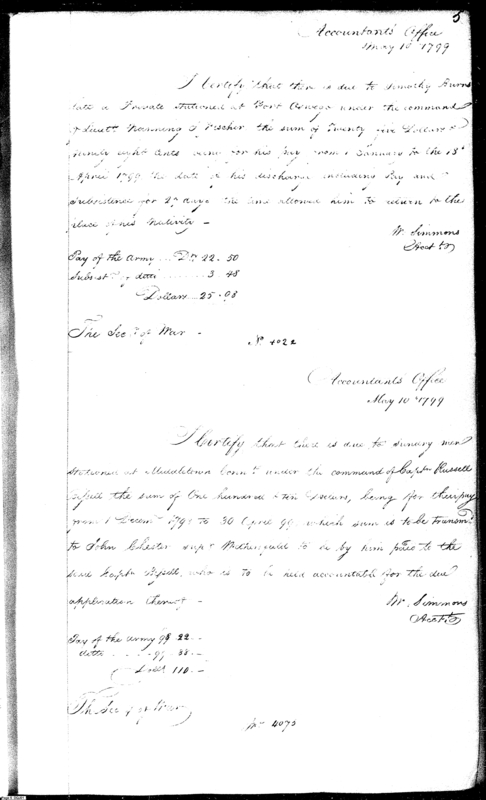 5
Accountant's Office
May 10th 1799
I Certify that there is due to Timothy Burns
late a Private stationed at Fort Oswego under the command
of Lieutt. the sum of Twenty five Dollars &
Ninety eight Cents being for his pay from 1 January to the 13th
April 1799 the date of his discharge including Pay and
Subsistence for days the time allowed him to return to the
place of his Nativity -
W. Simmons
Acctt.
Pay of the Army Drs 22.50
Subsist. of ditto 3.48
Dollars 25.98
The Secy. of War -
No. 4022
Accountants Office
May 10th 1799
I Certify that there is due to sundry men
stationed at Middletown Connt. under the command of Captn. Russell
Bissell the sum of One hundred & ten Dollars, being for their pay
from 1 Decemr. 1798 to 30 April 99, which sum is to be transmd.
to John Chester supr. Wethersfield to be by him paid to the
said Captn. Bissell, who is to be held accountable for the due
application thereof -
W. Simmons
Acctt.
Pay of the Army 98 22.-
ditto 99 88.-
Dolls. 110.-
The Secy. of War
No. 4073